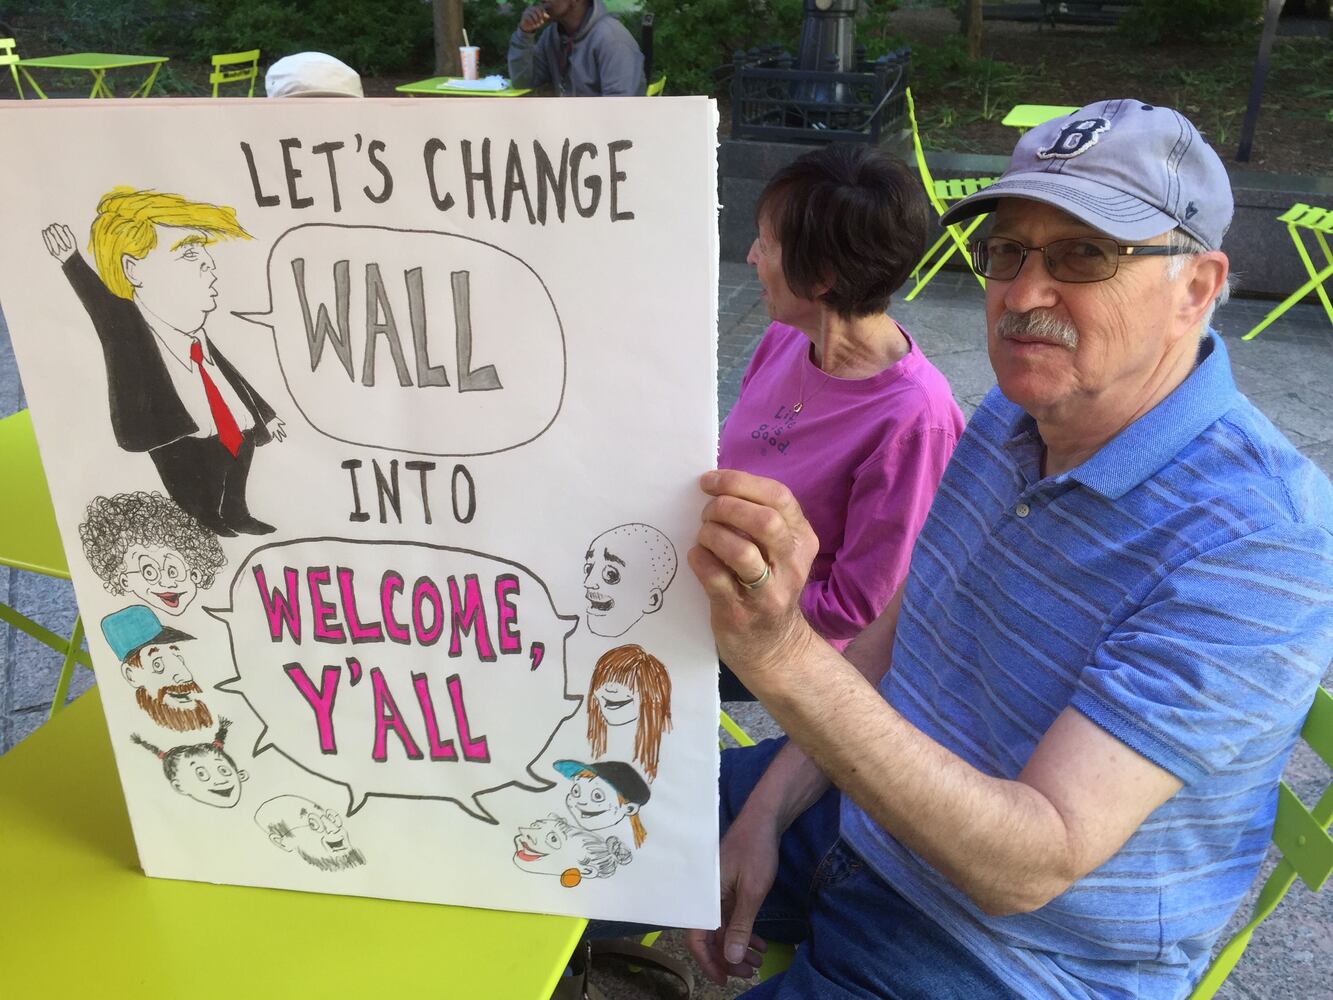 LET'S CHANGE
WALL
INTO
WELCOME,
Y'ALL
B
Life
is
good.